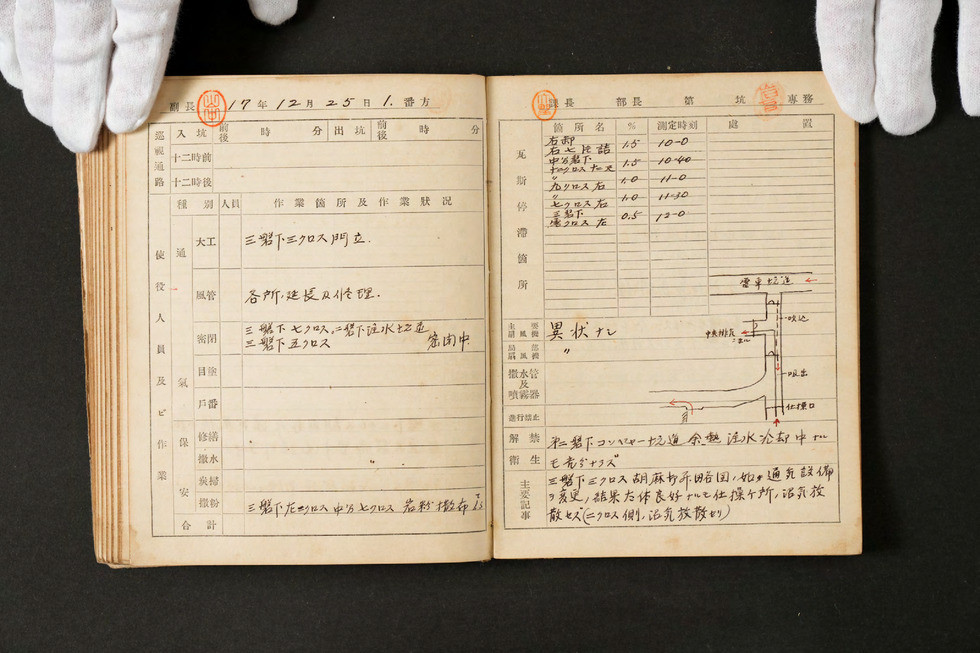 副長 17年12月25日1.番方
巡視通路 入坑 前後 時 分 出坑 前後 時 分
十二時前
十二時後
使役人員及ビ作業
種別 人員 作業箇所及作業狀況
通氣
大工 三盤下三クロス門立.
風管 各所,延長及修理.
密閉 三盤下七クロス,二盤下注水坑道
三盤下五クロス 密閉中
目塗
戸番
保安
修繕
撒水 〃
炭掃
撒粉 三盤下左三クロス中分七クロス岩粉撒布
合計
課長 部長 第 坑 專務
瓦斯停滯箇所
箇所名 % 測定時刻 處置
右卸
右七片詰 1.5 10-0
中分盤下
1.5 10-40
〃
九クロス右 1.0 11-0
〃
七クロス右 1.0 11-30
三盤下
零クロス左 0.5 12-0
電車坑道
吹込
中央排気
吸出
仕操口
主要扇風機 異狀ナシ
局部扇風機 〃
撒水管及噴霧器
進行禁止
解禁 第二盤下コンベヤー坑道余熱注水冷却中ナルモ
衛生
主要記事
三盤下三クロス 略図,如ク通気設備
ヲ変更,結果大体良好ナルモ仕操ケ所,沼気放
散セズ(二クロス側,沼気放散セリ)